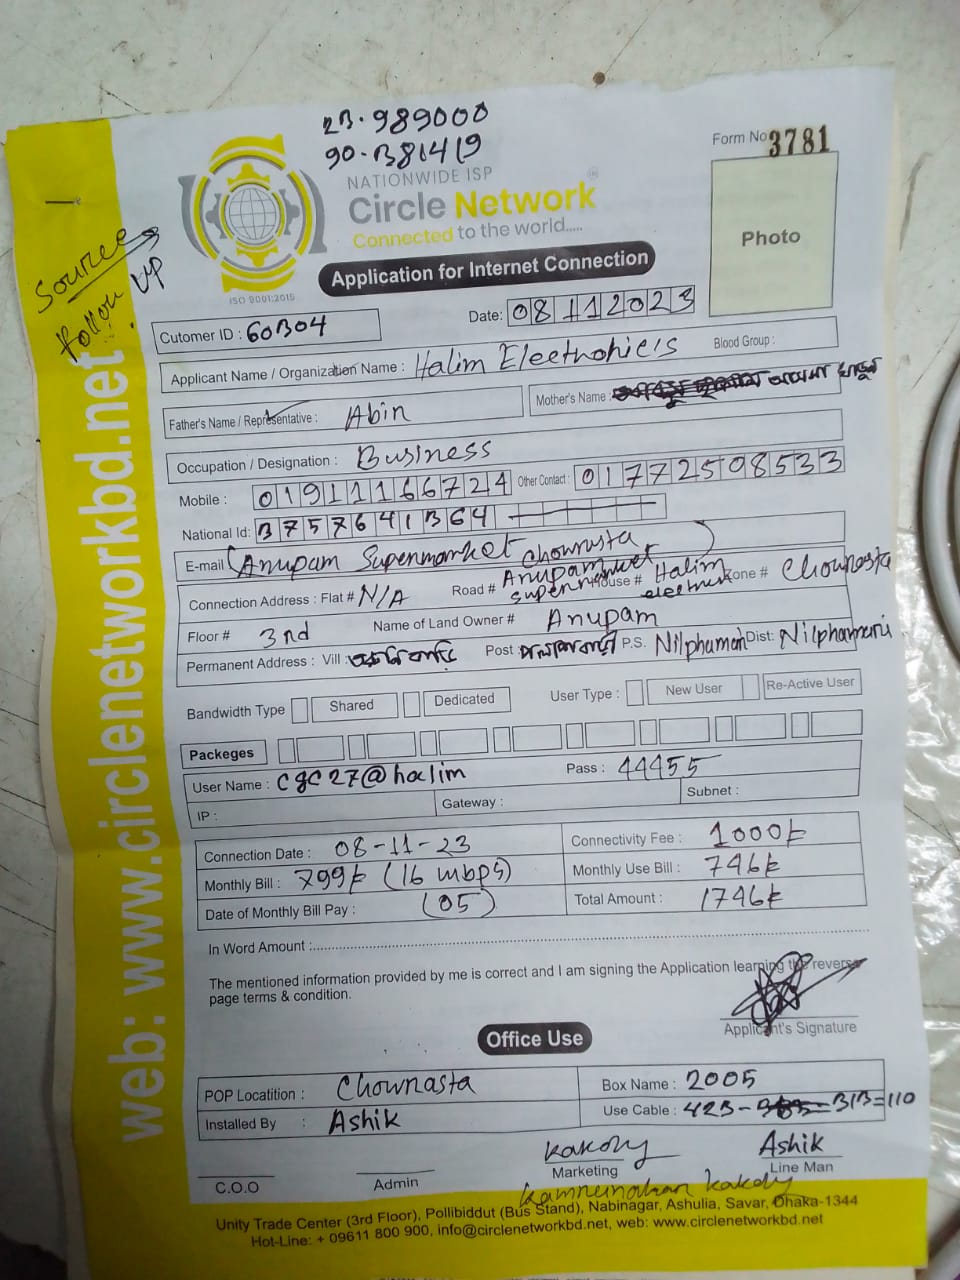 23.989000
90.381419
NATIONWIDE ISP
Circle Network
Connected to the world.....
ISO 9001:2015
Form No 3781
Photo
Source
Follow UP
Application for Internet Connection
Date: 08112023
Cutomer ID : 60304
Applicant Name / Organization Name : Halim Electronic's Blood Group :
Father's Name / Representative : Abin
Mother's Name :
Occupation / Designation : Business
Mobile : 01911166724 Other Contact : 01772508533
National Id: 3757641364
E-mail (Anupam Supermarket Chowrasta)
Connection Address : Flat # N/A Road # Anupam supermarket House # Halim electron Zone # Chowrasta
Floor # 3rd Name of Land Owner # Anupam
Permanent Address : Vill : Post P.S. Nilphamari Dist: Nilphamari
Bandwidth Type Shared Dedicated User Type : New User Re-Active User
Packeges
User Name : cgc27@halim Pass : 44455
IP : Gateway : Subnet :
Connection Date : 08-11-23 Connectivity Fee : 1000৳
Monthly Bill : 799৳ (16 mbps) Monthly Use Bill : 746৳
Date of Monthly Bill Pay : (05) Total Amount : 1746৳
In Word Amount :
The mentioned information provided by me is correct and I am signing the Application learning the reverse
page terms & condition.
Applicant's Signature
Office Use
POP Locatition : Chowrasta Box Name : 2005
Installed By : Ashik Use Cable : 423 - 313 = 110
C.O.O Admin Kakoly Marketing Ashik Line Man
Kamrunnahar Kakoly
Unity Trade Center (3rd Floor), Pollibiddut (Bus Stand), Nabinagar, Ashulia, Savar, Dhaka-1344
Hot-Line: + 09611 800 900, info@circlenetworkbd.net, web: www.circlenetworkbd.net
web: www.circlenetworkbd.net